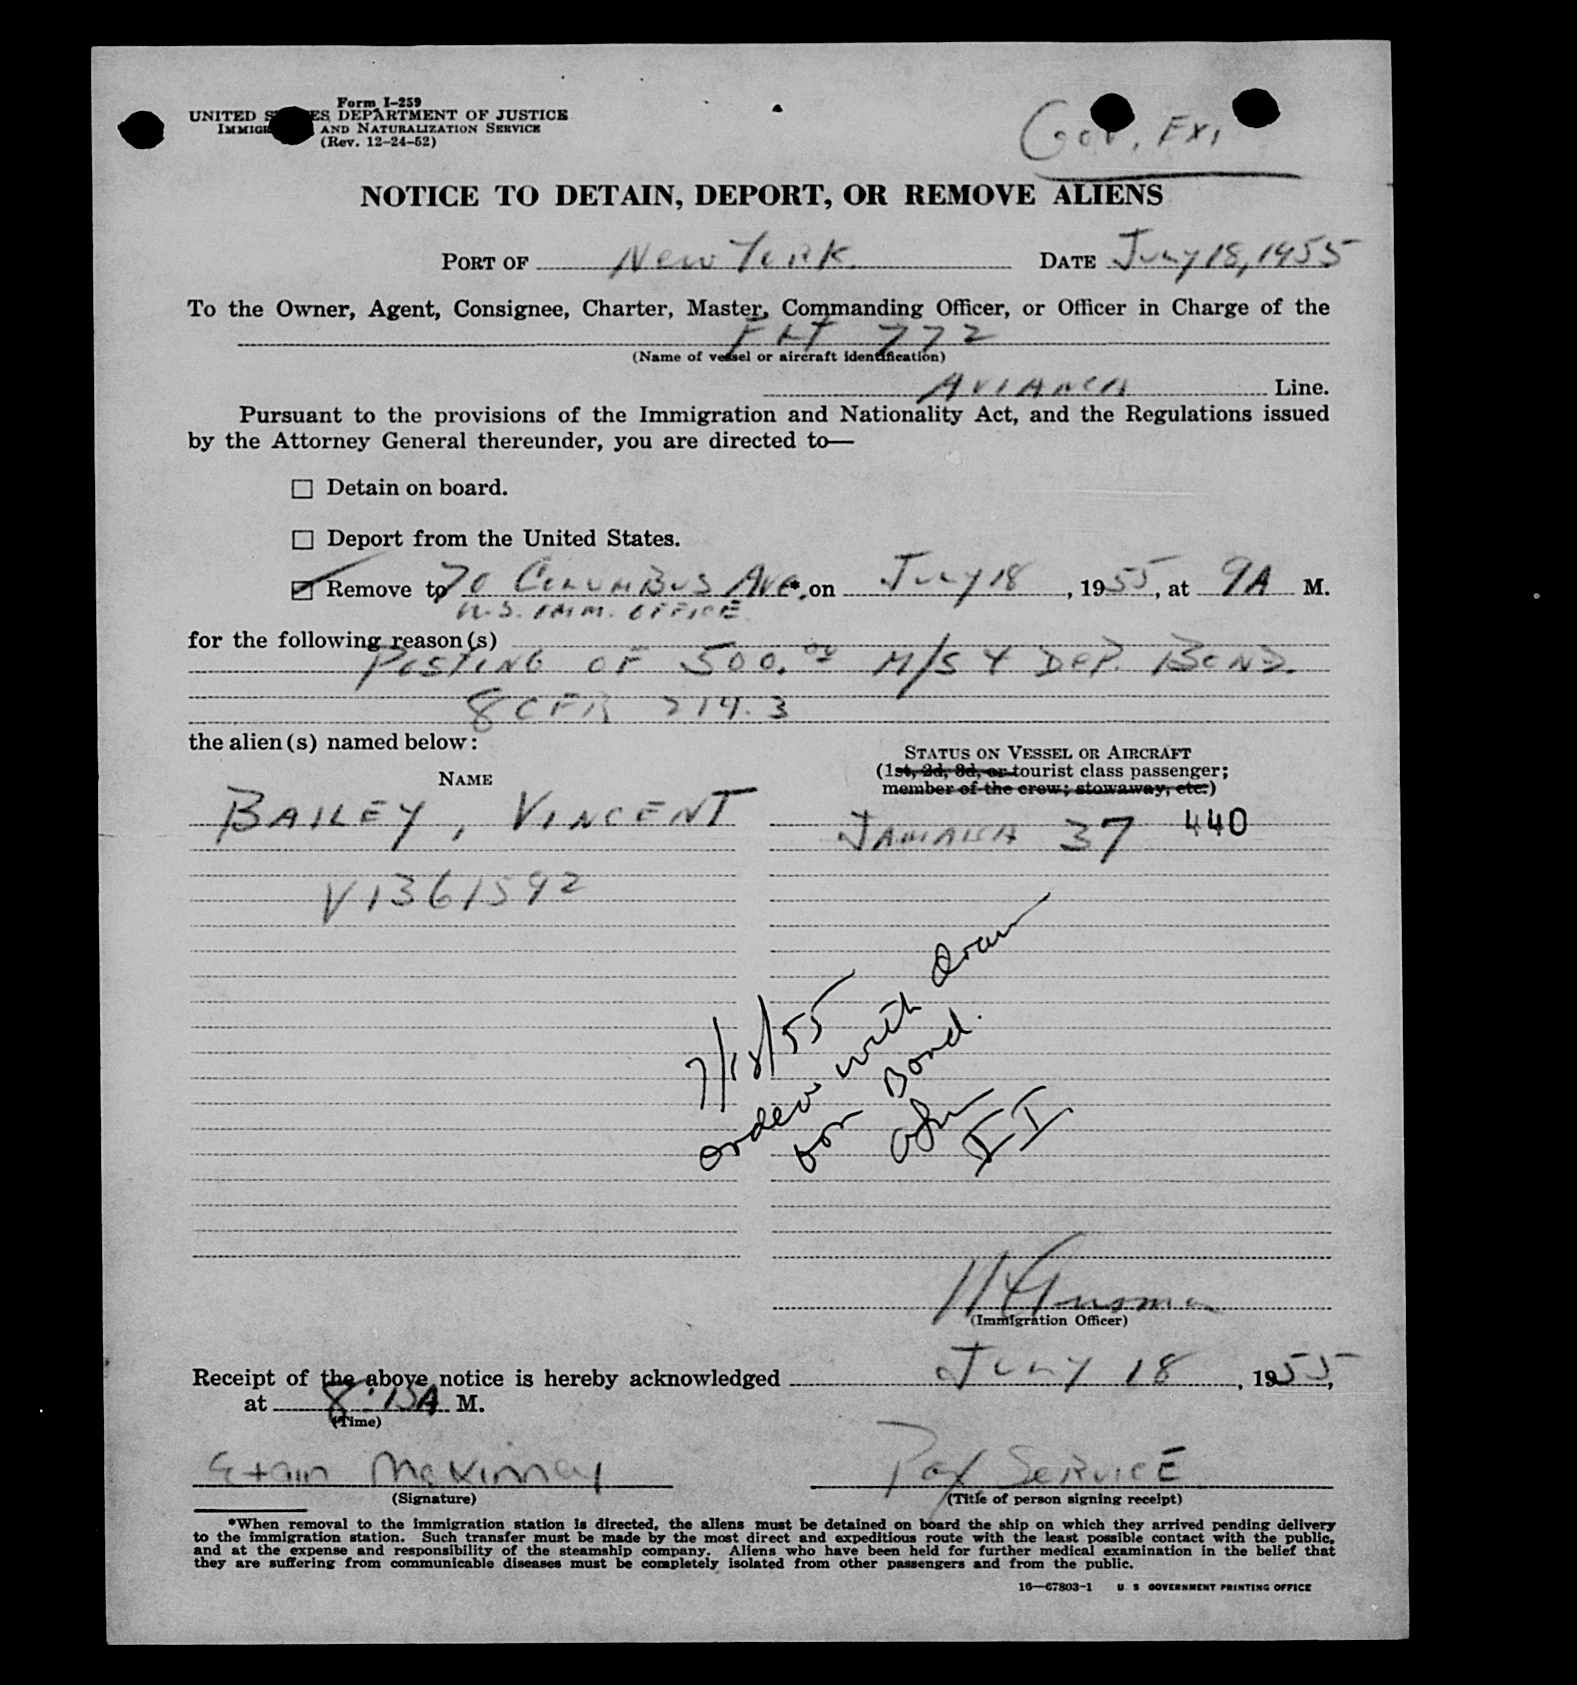 Form I-259
UNITED S ES DEPARTMENT OF JUSTICE
IMMIG AND NATURALIZATION SERVICE
(Rev. 12-24-52)
Gov. Ex,
NOTICE TO DETAIN, DEPORT, OR REMOVE ALIENS
PORT OF New York DATE July 18, 1955
To the Owner, Agent, Consignee, Charter, Master, Commanding Officer, or Officer in Charge of the
FLT 772
(Name of vessel or aircraft identification)
AVIANCA Line.
Pursuant to the provisions of the Immigration and Nationality Act, and the Regulations issued
by the Attorney General thereunder, you are directed to—
Detain on board.
Deport from the United States.
Remove to 70 COLUMBUS AVE.* on July 18, 1955, at 9A M.
U.S. IMM. OFFICE
for the following reason(s)
POSTING OF 500.00 M/S & DEP. BOND.
8 CFR 214.3
the alien(s) named below:
NAME
STATUS ON VESSEL OR AIRCRAFT
(1st, 2d, 3d, or tourist class passenger;
member of the crew; stowaway, etc.)
BAILEY, VINCENT JAMAICA 37 440
V1361592
7/18/55
order with draw
for Bond.
II
(Immigration Officer)
Receipt of the above notice is hereby acknowledged July 18, 1955,
at 8:15A M.
(Time)
McKinney Pax SERVICE
(Signature) (Title of person signing receipt)
*When removal to the immigration station is directed, the aliens must be detained on board the ship on which they arrived pending delivery
to the immigration station. Such transfer must be made by the most direct and expeditious route with the least possible contact with the public,
and at the expense and responsibility of the steamship company. Aliens who have been held for further medical examination in the belief that
they are suffering from communicable diseases must be completely isolated from other passengers and from the public.
16—67803-1 U. S. GOVERNMENT PRINTING OFFICE